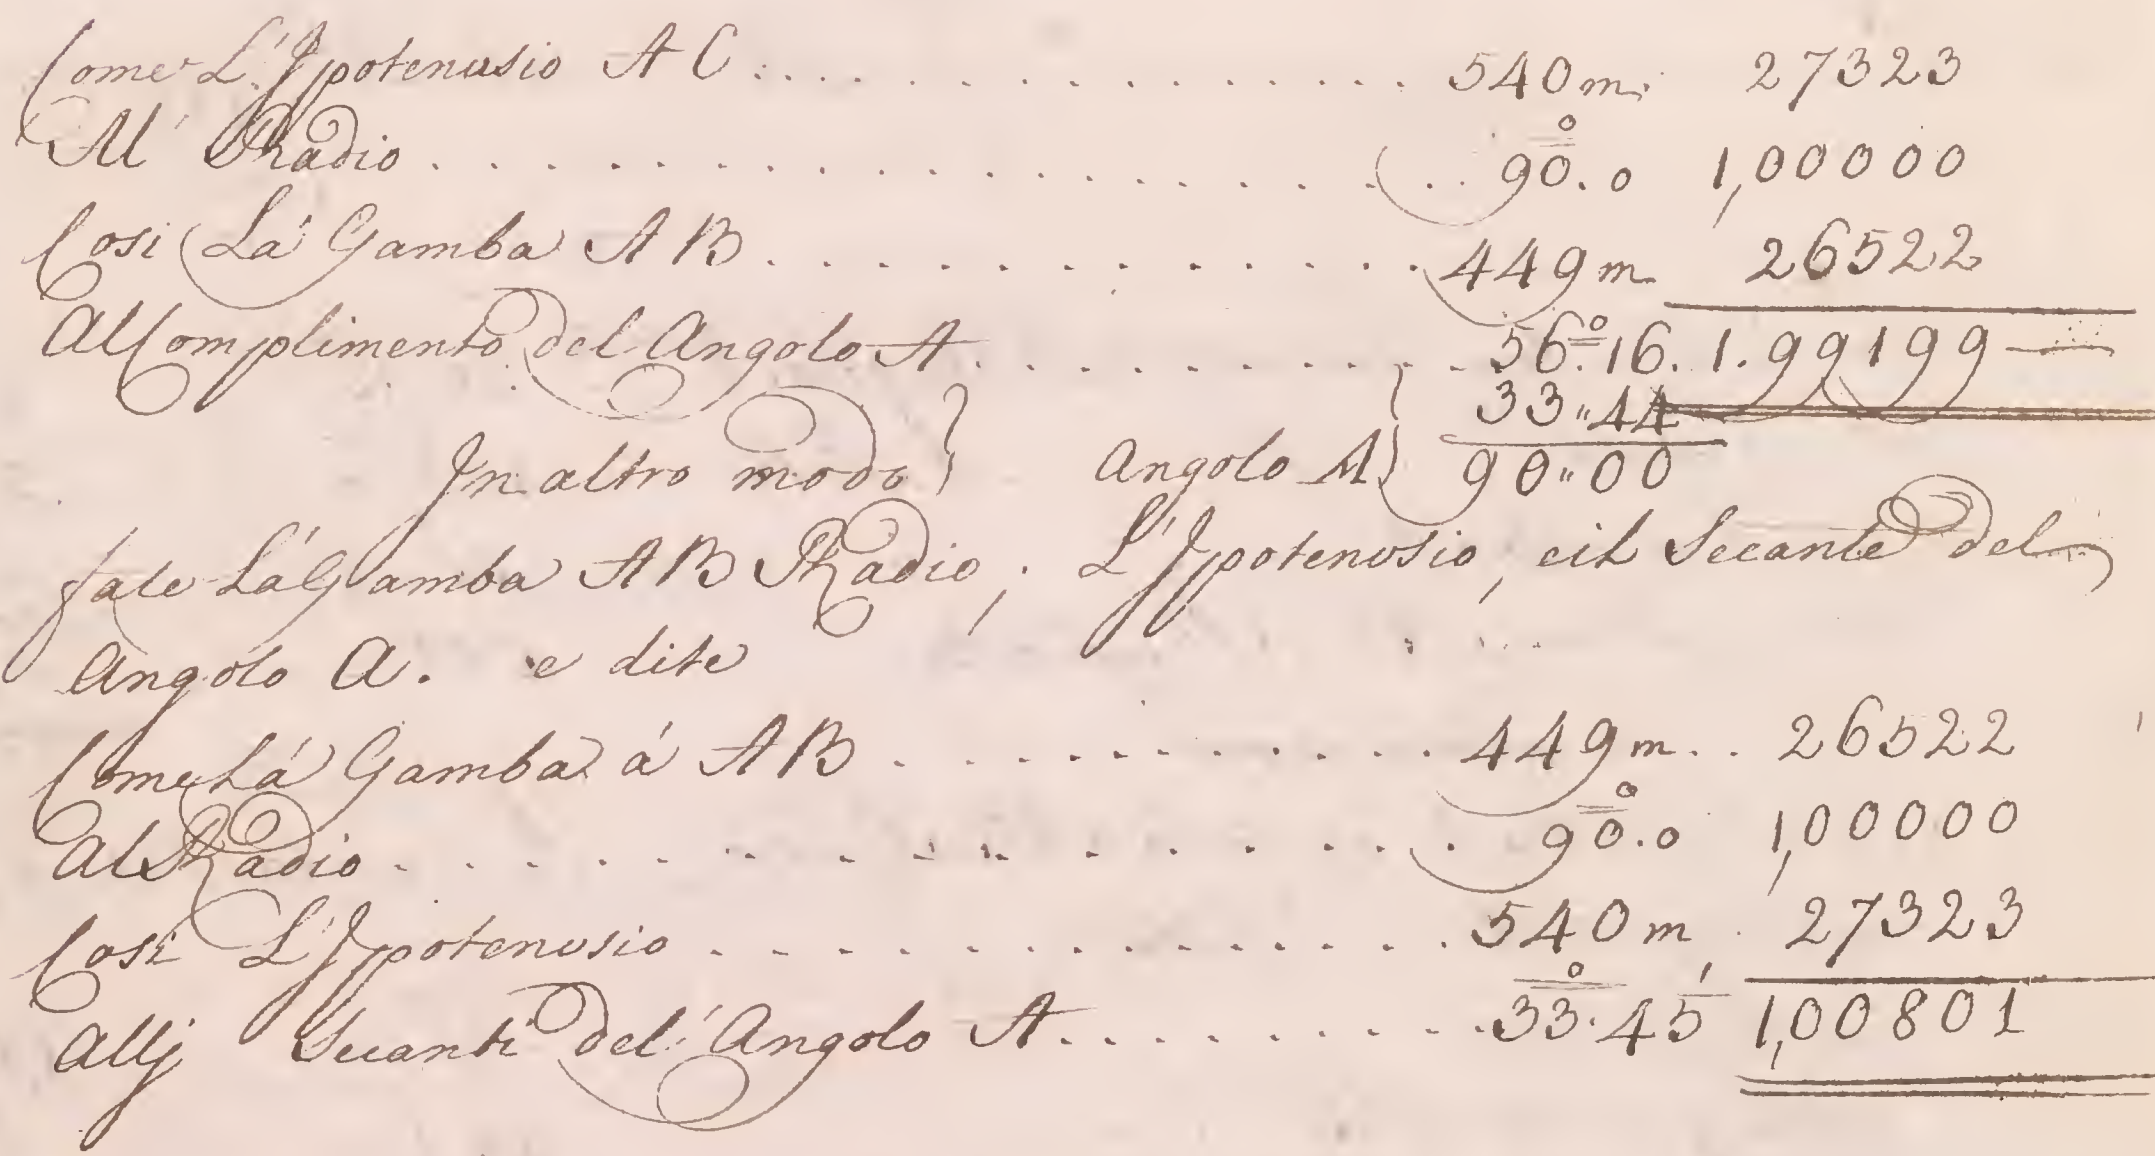 Come L'Jpotenusio A C . . . . . . . . . . 540 m. 27323
Al' Radio . . . . . . . . . . 90°.0 1,00000
Cosi La' Gamba A B . . . . . . . . . . 449 m 26522
Al Complimento del Angolo A . . . . . . . . 56°.16. 1.99199
33"44
In altro modo } Angolo A } 90"00
fate La' Gamba A B Radio, L'Jpotenusio, eil Secante del
Angolo A. e dite
Come Lá Gamba á A B . . . . . . . . 449 m . . 26522
Al Radio . . . . . . . . . . 90°.0 1,00000
Cosi L'Jpotenusio . . . . . . . . . . 540 m. 27323
Allj Secanti del' Angolo A . . . . . . . . 33°.45' 1,00801